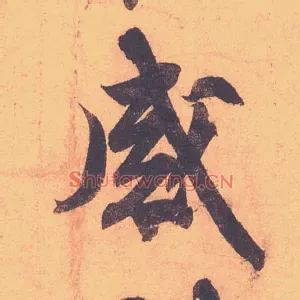 威
Shufawang.CN